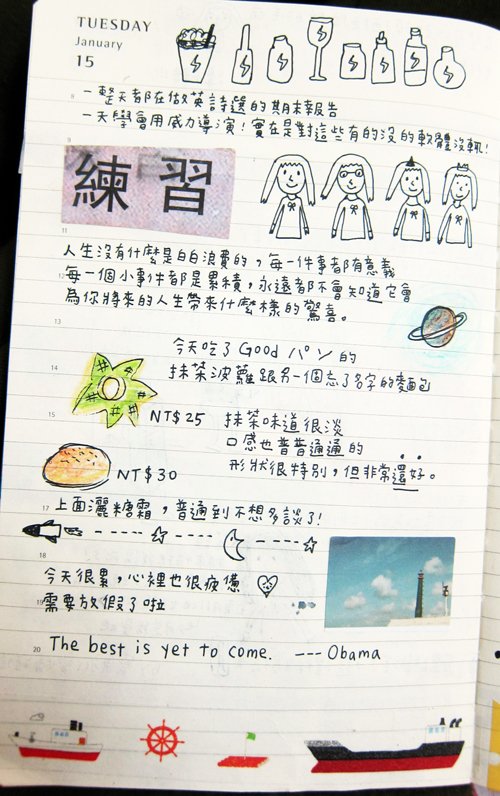 TUESDAY
January
15
8
一整天都在做英詩選的期末報告
一天學會用威力導演！實在是對這些有的沒的軟體沒輒！
9
練習
11
人生沒有什麼是白白浪費的，每一件事都有意義
12
每一個小事件都是累積，永遠都不會知道它會
為你將來的人生帶來什麼樣的驚喜。
13
今天吃了Good パン的
14
抹茶波蘿跟另一個忘了名字的麵包
15
NT$25 抹茶味道很淡
口感也普普通通的
形狀很特別，但非常還好。
NT$30
17
上面灑糖霜，普通到不想多談了！
18
今天很累，心裡也很疲憊
19
需要放假了啦
20
The best is yet to come. --- Obama